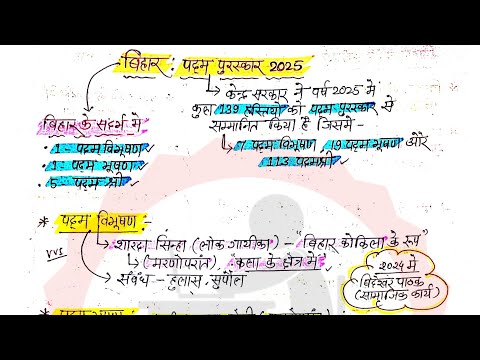 बिहार : पद्म पुरस्कार 2025
→ केन्द्र सरकार ने वर्ष 2025 में
कुल 139 हस्तियों को पद्म पुरस्कार से
सम्मानित किया है जिसमें -
→ 7 पद्म विभूषण, 19 पद्म भूषण और
113 पद्मश्री
बिहार के संदर्भ में
• 1 - पद्म विभूषण
• 1 - पद्म भूषण
• 5 - पद्म श्री
* पद्म विभूषण -
VVS
→ शारदा सिन्हा (लोक गायिका) - "बिहार कोकिला के रूप"
→ (मरणोपरांत) कला के क्षेत्र में
→ संबंध - हुलास, सुपौल
2024 में
बिंदेश्वर पाठक
(सामाजिक कार्य)